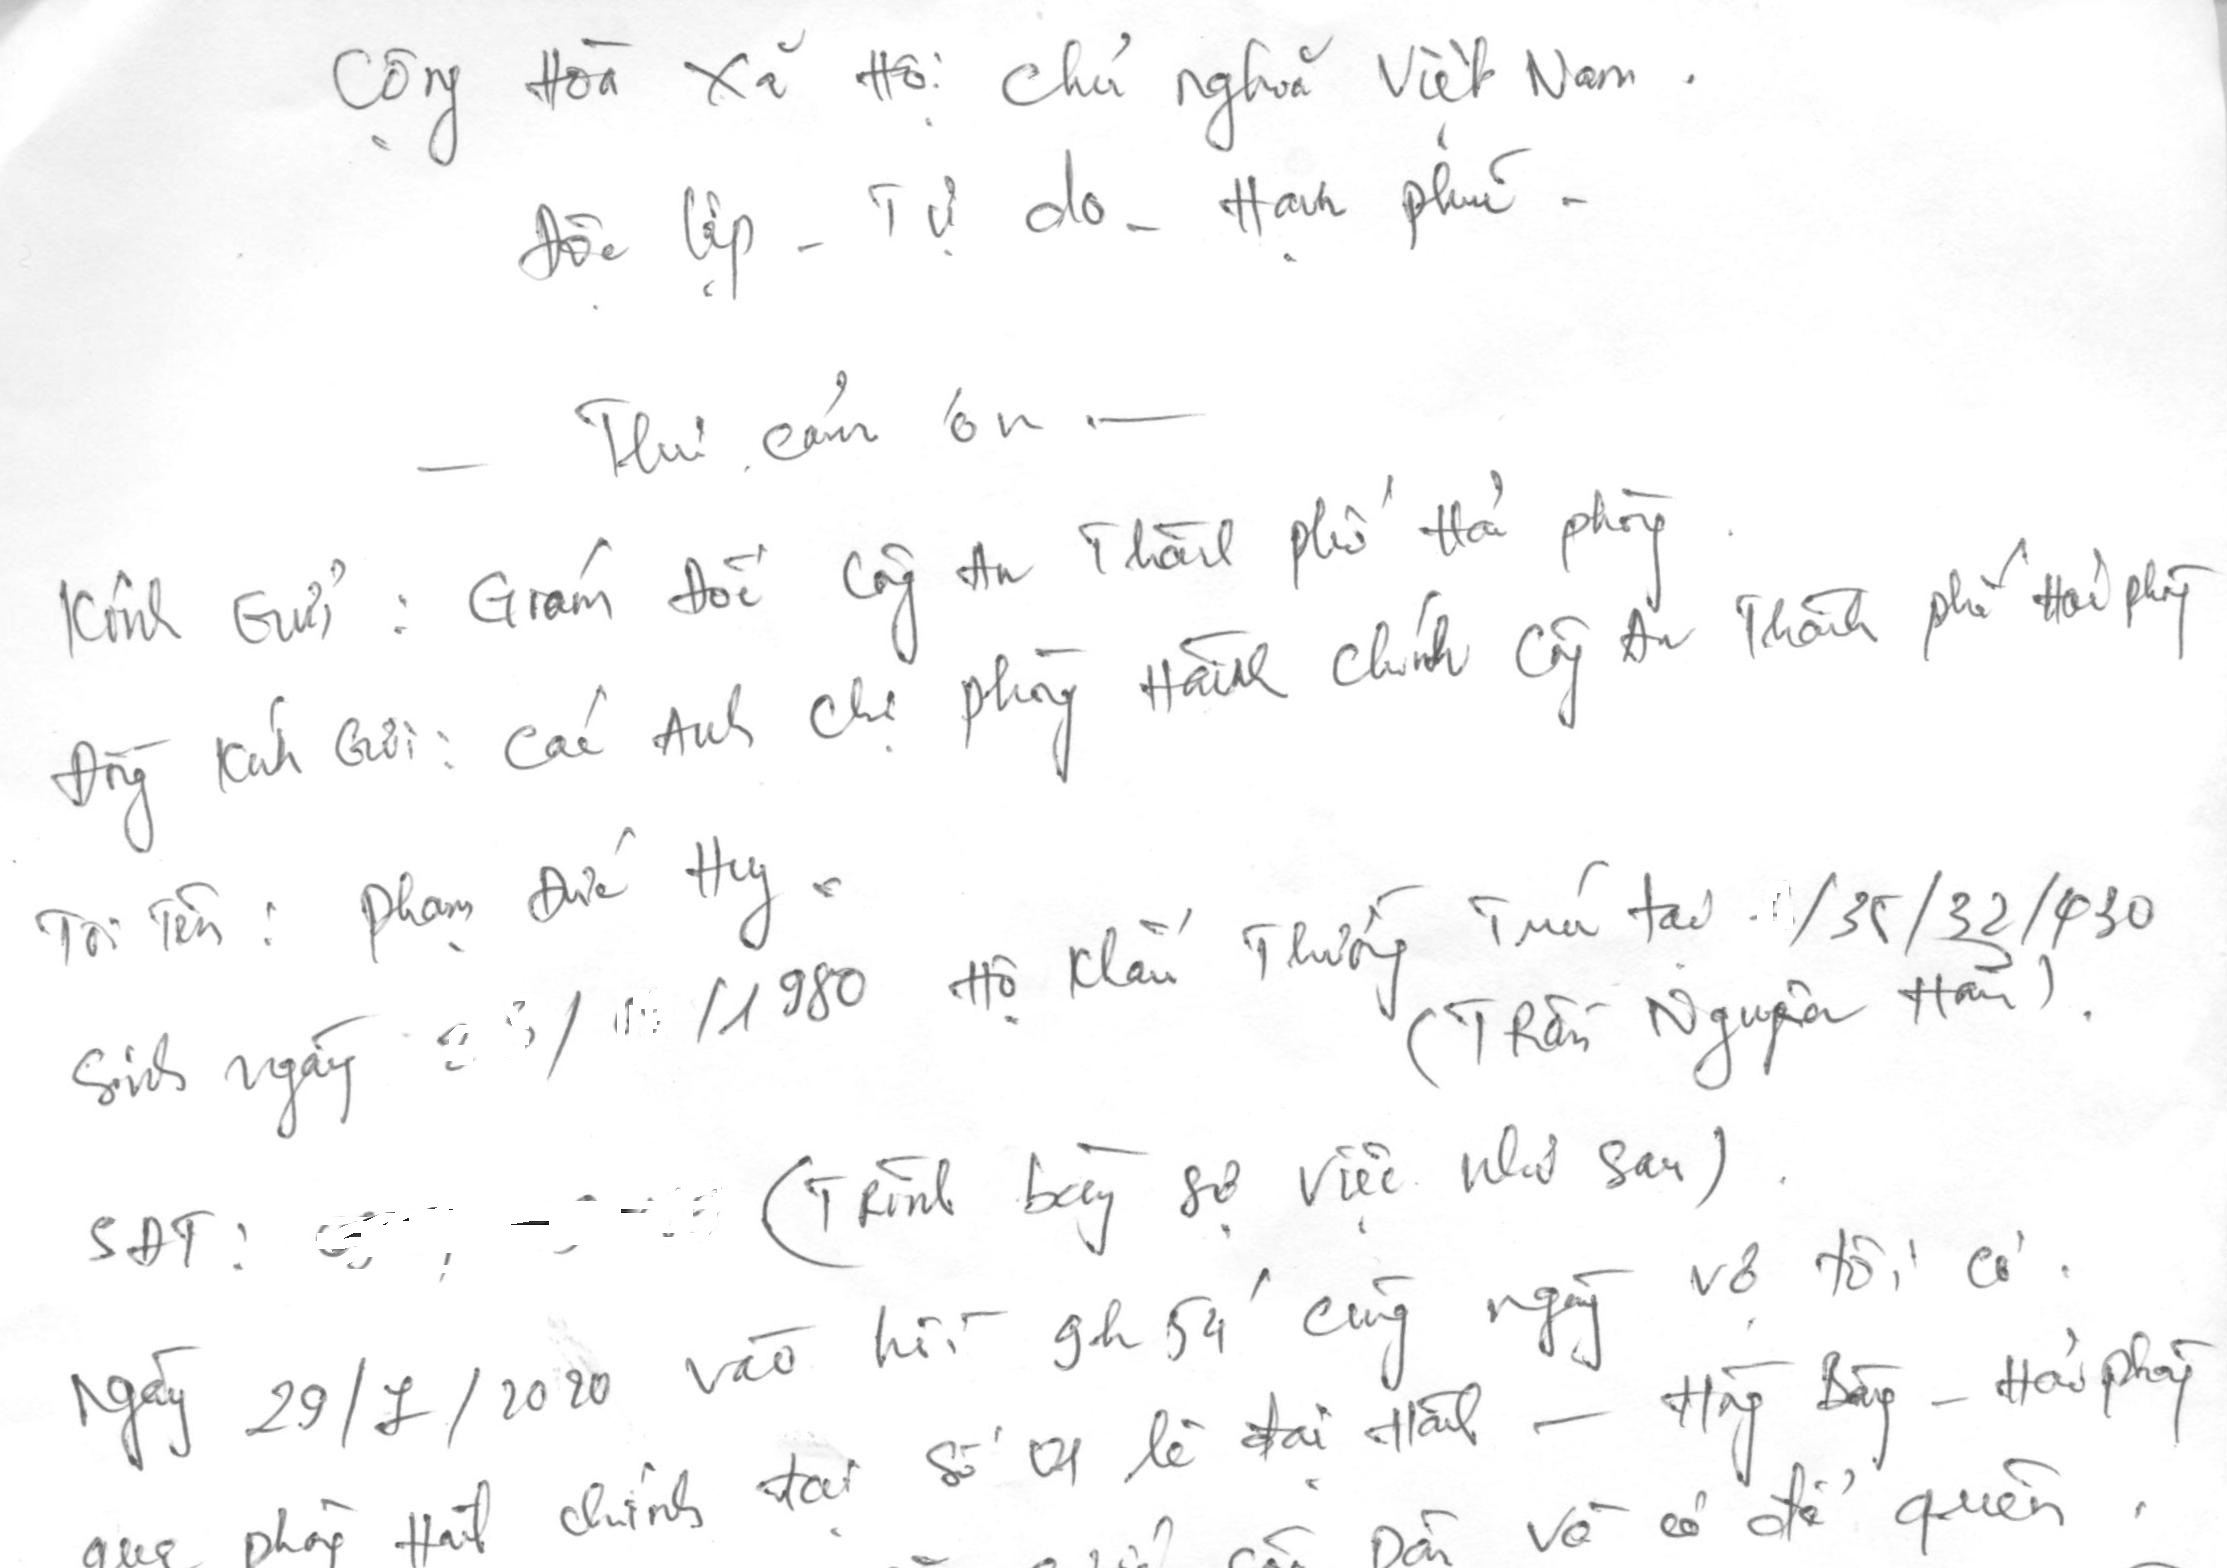 Cộng Hòa Xã Hội Chủ nghĩa Việt Nam.
Độc lập - Tự do - Hạnh phúc -
— Thư cảm ơn —
Kính Gửi : Giám Đốc Công An Thành phố Hải phòng.
Đồng Kính Gửi : Các Anh chị phòng Hành chính Công An Thành phố Hải phòng
Tôi Tên : Phạm Đức Huy.
Sinh ngày / /1980 Hộ khẩu Thường Trú tại /35/32/430
(Trần Nguyên Hãn).
SĐT : (Trình bày sự việc như sau).
Ngày 29/7/2020 vào hồi 9h54' cùng ngày vợ tôi có.
qua phòng Hành chính tại số 01 lê đại Hành — Hồng Bàng - Hải phòng
căn Dân và có để quên.